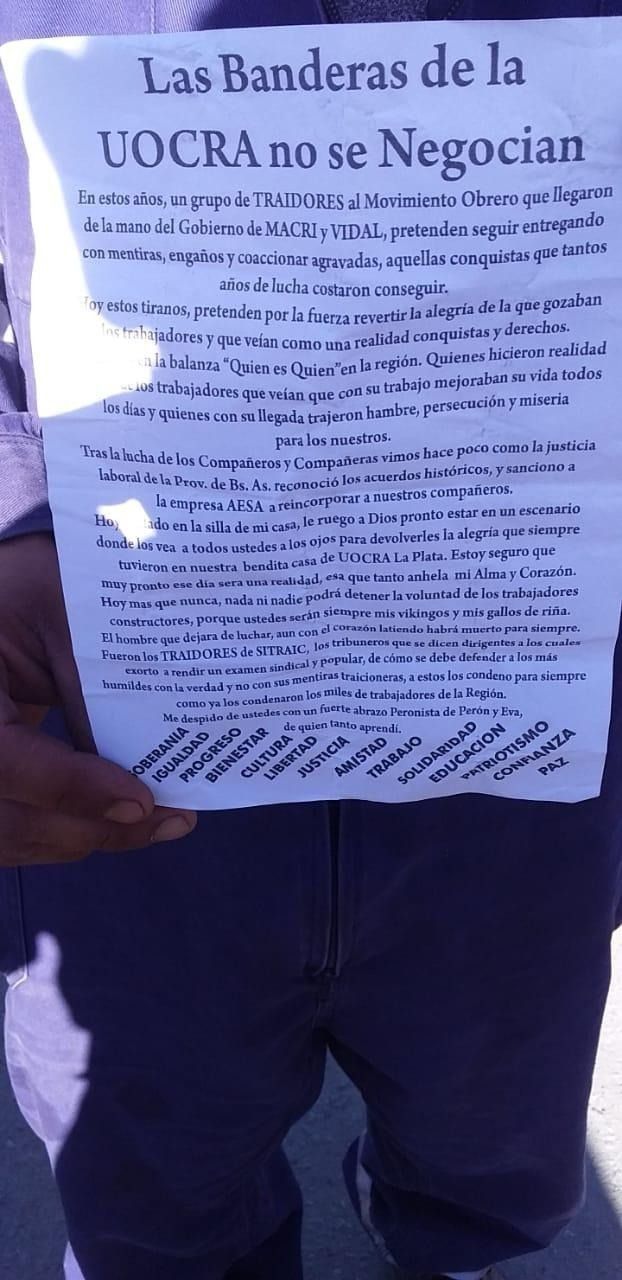 Las Banderas de la
UOCRA no se Negocian
En estos años, un grupo de TRAIDORES al Movimiento Obrero que llegaron
de la mano del Gobierno de MACRI y VIDAL, pretenden seguir entregando
con mentiras, engaños y coaccionar agravadas, aquellas conquistas que tantos
años de lucha costaron conseguir.
estos tiranos, pretenden por la fuerza revertir la alegría de la que gozaban
los trabajadores y que veían como una realidad conquistas y derechos.
la balanza “Quien es Quien”en la región. Quienes hicieron realidad
los trabajadores que veían que con su trabajo mejoraban su vida todos
los días y quienes con su llegada trajeron hambre, persecución y miseria
para los nuestros.
Tras la lucha de los Compañeros y Compañeras vimos hace poco como la justicia
laboral de la Prov. de Bs. As. reconoció los acuerdos históricos, y sanciono a
la empresa AESA a reincorporar a nuestros compañeros.
en la silla de mi casa, le ruego a Dios pronto estar en un escenario
donde los vea a todos ustedes a los ojos para devolverles la alegría que siempre
tuvieron en nuestra bendita casa de UOCRA La Plata. Estoy seguro que
muy pronto ese día sera una realidad, esa que tanto anhela mi Alma y Corazón.
Hoy mas que nunca, nada ni nadie podrá detener la voluntad de los trabajadores
constructores, porque ustedes serán siempre mis vikingos y mis gallos de riña.
El hombre que dejara de luchar, aun con el corazón latiendo habrá muerto para siempre.
Fueron los TRAIDORES de SITRAIC, los tribuneros que se dicen dirigentes a los cuales
exorto a rendir un examen sindical y popular, de cómo se debe defender a los más
humildes con la verdad y no con sus mentiras traicioneras, a estos los condeno para siempre
como ya los condenaron los miles de trabajadores de la Región.
Me despido de ustedes con un fuerte abrazo Peronista de Perón y Eva,
de quien tanto aprendí.
IGUALDAD
PROGRESO
BIENESTAR
CULTURA
LIBERTAD
JUSTICIA
AMISTAD
TRABAJO
SOLIDARIDAD
EDUCACION
PATRIOTISMO
CONFIANZA
PAZ